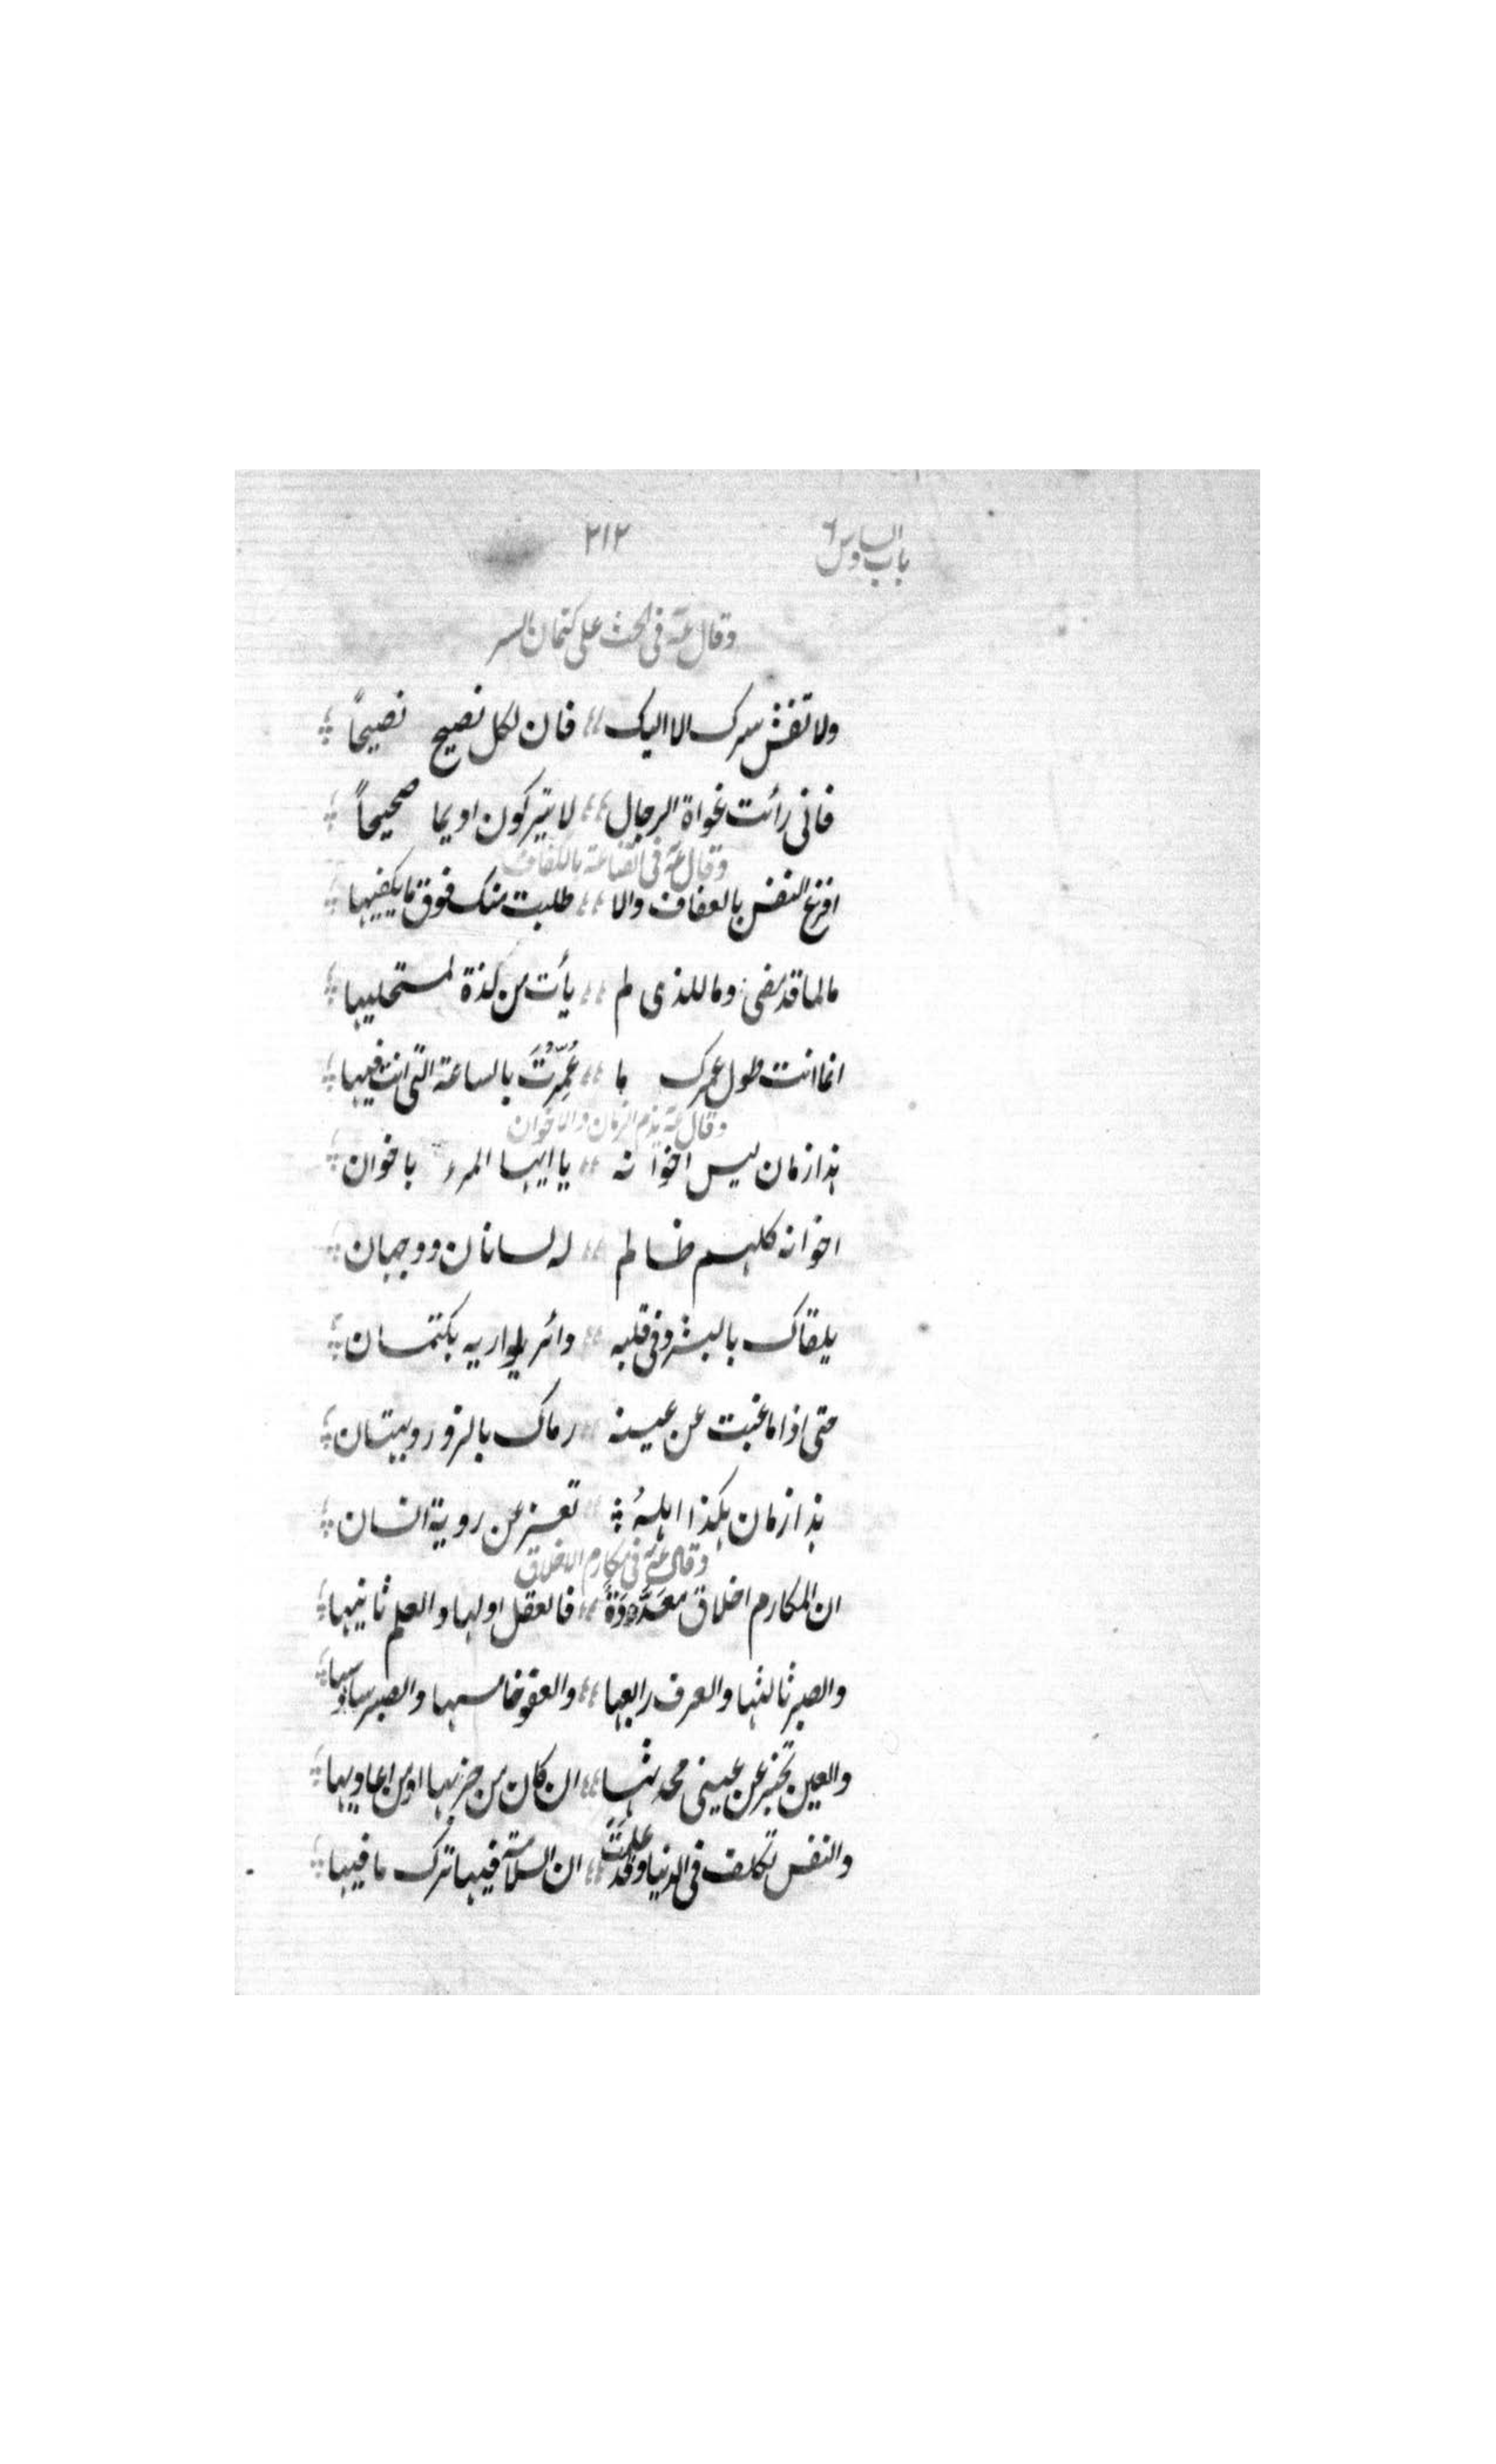 باب السادس ٢١٢
وقال عنه فى الحث على كتمان السر
ولا تفش سرك الا اليك فان لكل نصيح نصيحاً
فانى رأيت غواة الرجال لا يتركون اديما صحيحاً
وقال عنه فى القناعة بالكفاف
اقنع النفس بالعفاف والا طلبت منك فوق ما يكفيها
ما لما قد مضى وما للذى لم يأت من لذة لمستحليها
انما انت طول عمرك ما عُمِّرْتَ بالساعة التى انت فيها
وقال عنه يذم الزمان والاخوان
هذا زمان ليس اخوانه يا ايها المرء باخوان
اخوانه كلهم ظالم له لسانان ووجهان
يلقاك بالبشر وفى قلبه دائر يواريه بكتمان
حتى اذا ما غبت عن عينه رماك بالزور وبهتان
هذا زمان هكذا اهلهُ تعسر عن روية انسان
وقال عنه فى مكارم الاخلاق
ان المكارم اخلاق مَعْدُودَةٌ فالعقل اولها والعلم ثانيها
والصبر ثالثها والعرف رابعها والعفو خامسها والصبر سادسها
والعين تخبر عن عينى محدثها ان كان من حزبها او من اعاديها
والنفس تكلف فى الدنيا وقد علمت ان السلامة فيها ترك ما فيها